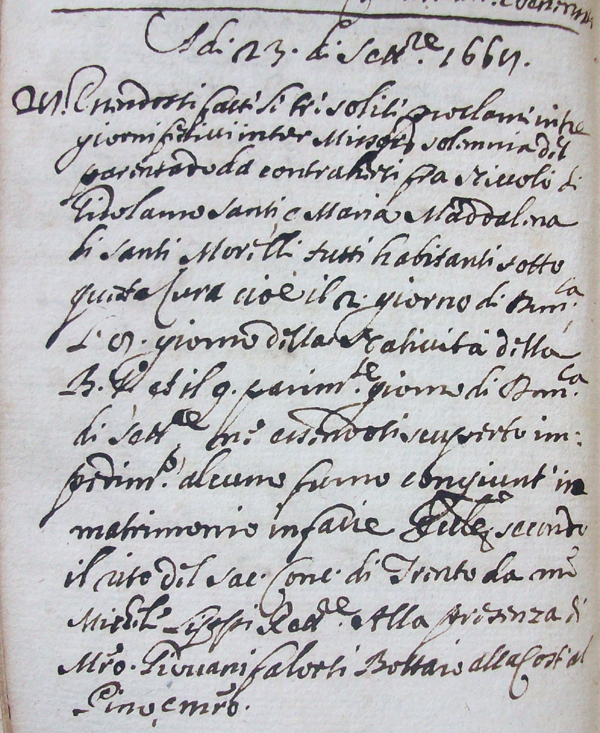 Adi. 23. di Sett.re 1667.
Essendosi fatti li tri soliti proclami in tre
giorni festivi inter Missar solemnia del
parentado da contraherti fra Niccolò di
Girolamo Santi e Maria Maddalena
di Santi Morelli tutti habitanti sotto
questa Cura cioè il 2. giorno di Dom.ca
L' 8. giorno della Natività della
B. V. et il 9. parim.te giorno di Dom.ca
di Sett.re ne essendosi scuperto im:
pedim.o alcuno furno congiunt' in
matrimonio in facie secondo
il rito del Sac. Conc. di Trento da me
Mich.le Rett.re Alla presenza di
Mro. Giovani Bottaio alla Cost' al
Pino, e mro.